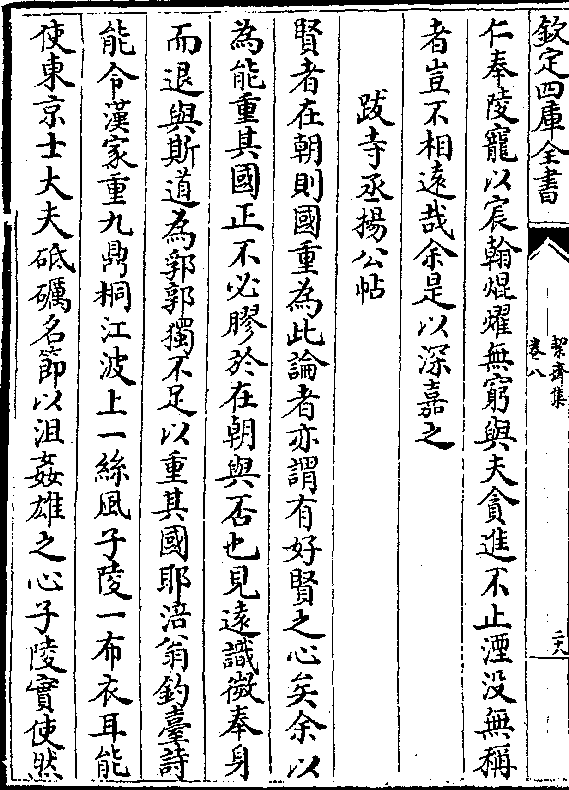 欽定四庫全書
絜齋集
卷八
二八
仁奉陵寵以宸翰焜燿無窮與夫貪進不止湮没無稱
者豈不相逺哉余是以深嘉之
跋寺丞揚公帖
賢者在朝則國重為此論者亦謂有好賢之心矣余以
為能重其國正不必膠於在朝與否也見逺識微奉身
而退與斯道為郛郭獨不足以重其國耶涪翁釣臺詩
能令漢家重九鼎桐江波上一絲風子陵一布衣耳能
使東京士大夫砥礪名節以沮姦雄之心子陵實使然